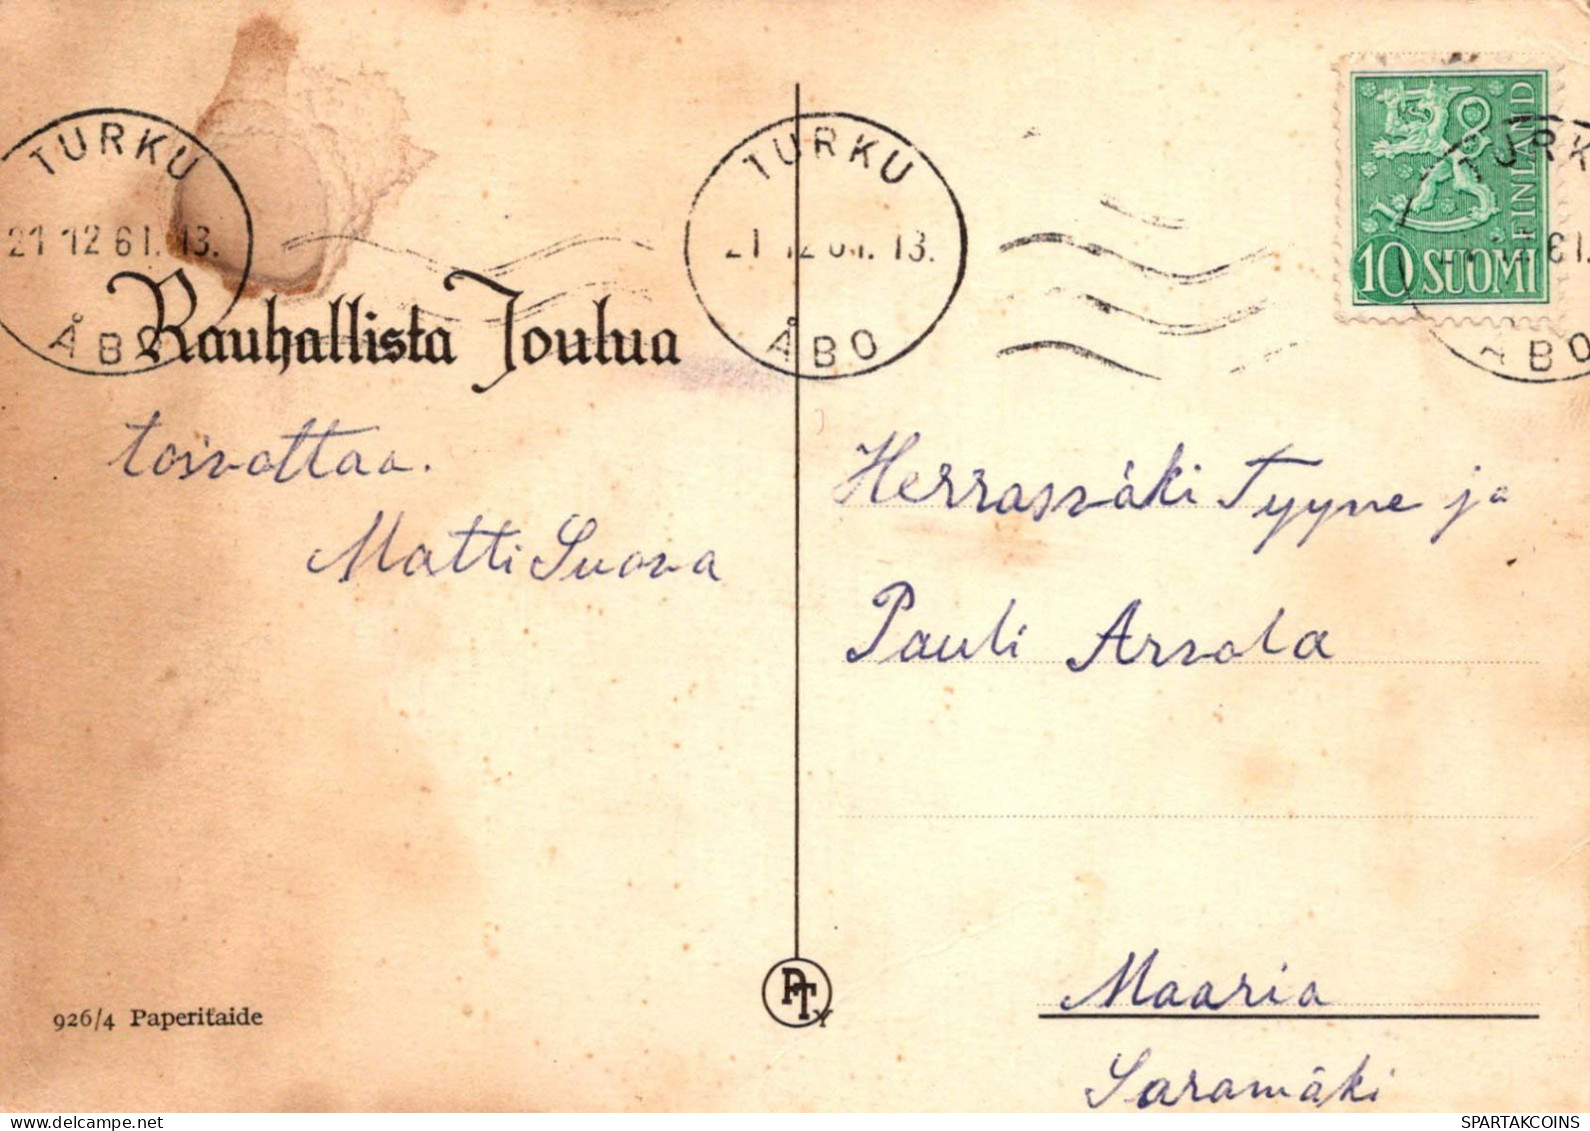 TURKU
21 12 61. 13.
ÅBO
TURKU
21 12 61. 13.
ÅBO
FINLAND
10 SUOMI
TURK
61.
ÅBO
Rauhallista Joulua
toivottaa.
Matti Suova
Herrasväki Tyyne ja
Pauli Arvola
Maaria
Saramäki
PTY
926/4 Paperitaide
www.delcampe.net
SPARTAKCOINS